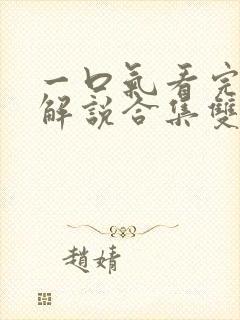 一口氣看完
解說合集雙
趙婧